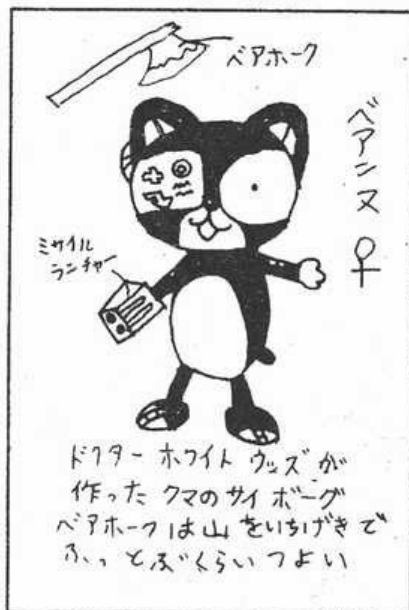 ベアホーク
ベアンヌ ♀
ミサイル
ランチャー
ドクター ホワイト ウッズが
作った クマのサイボーグ
ベアホークは山をいちげきで
ふっとぶくらいつよい